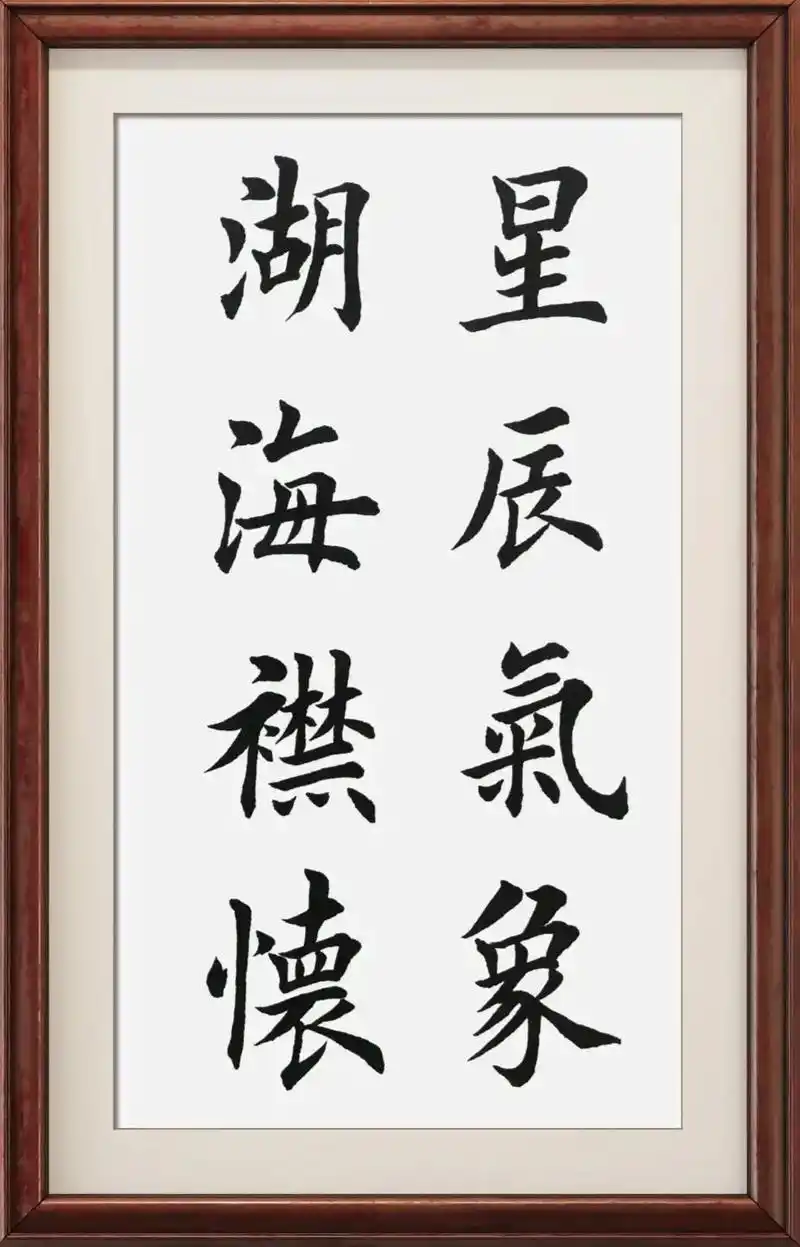 星辰氣象
湖海襟懷